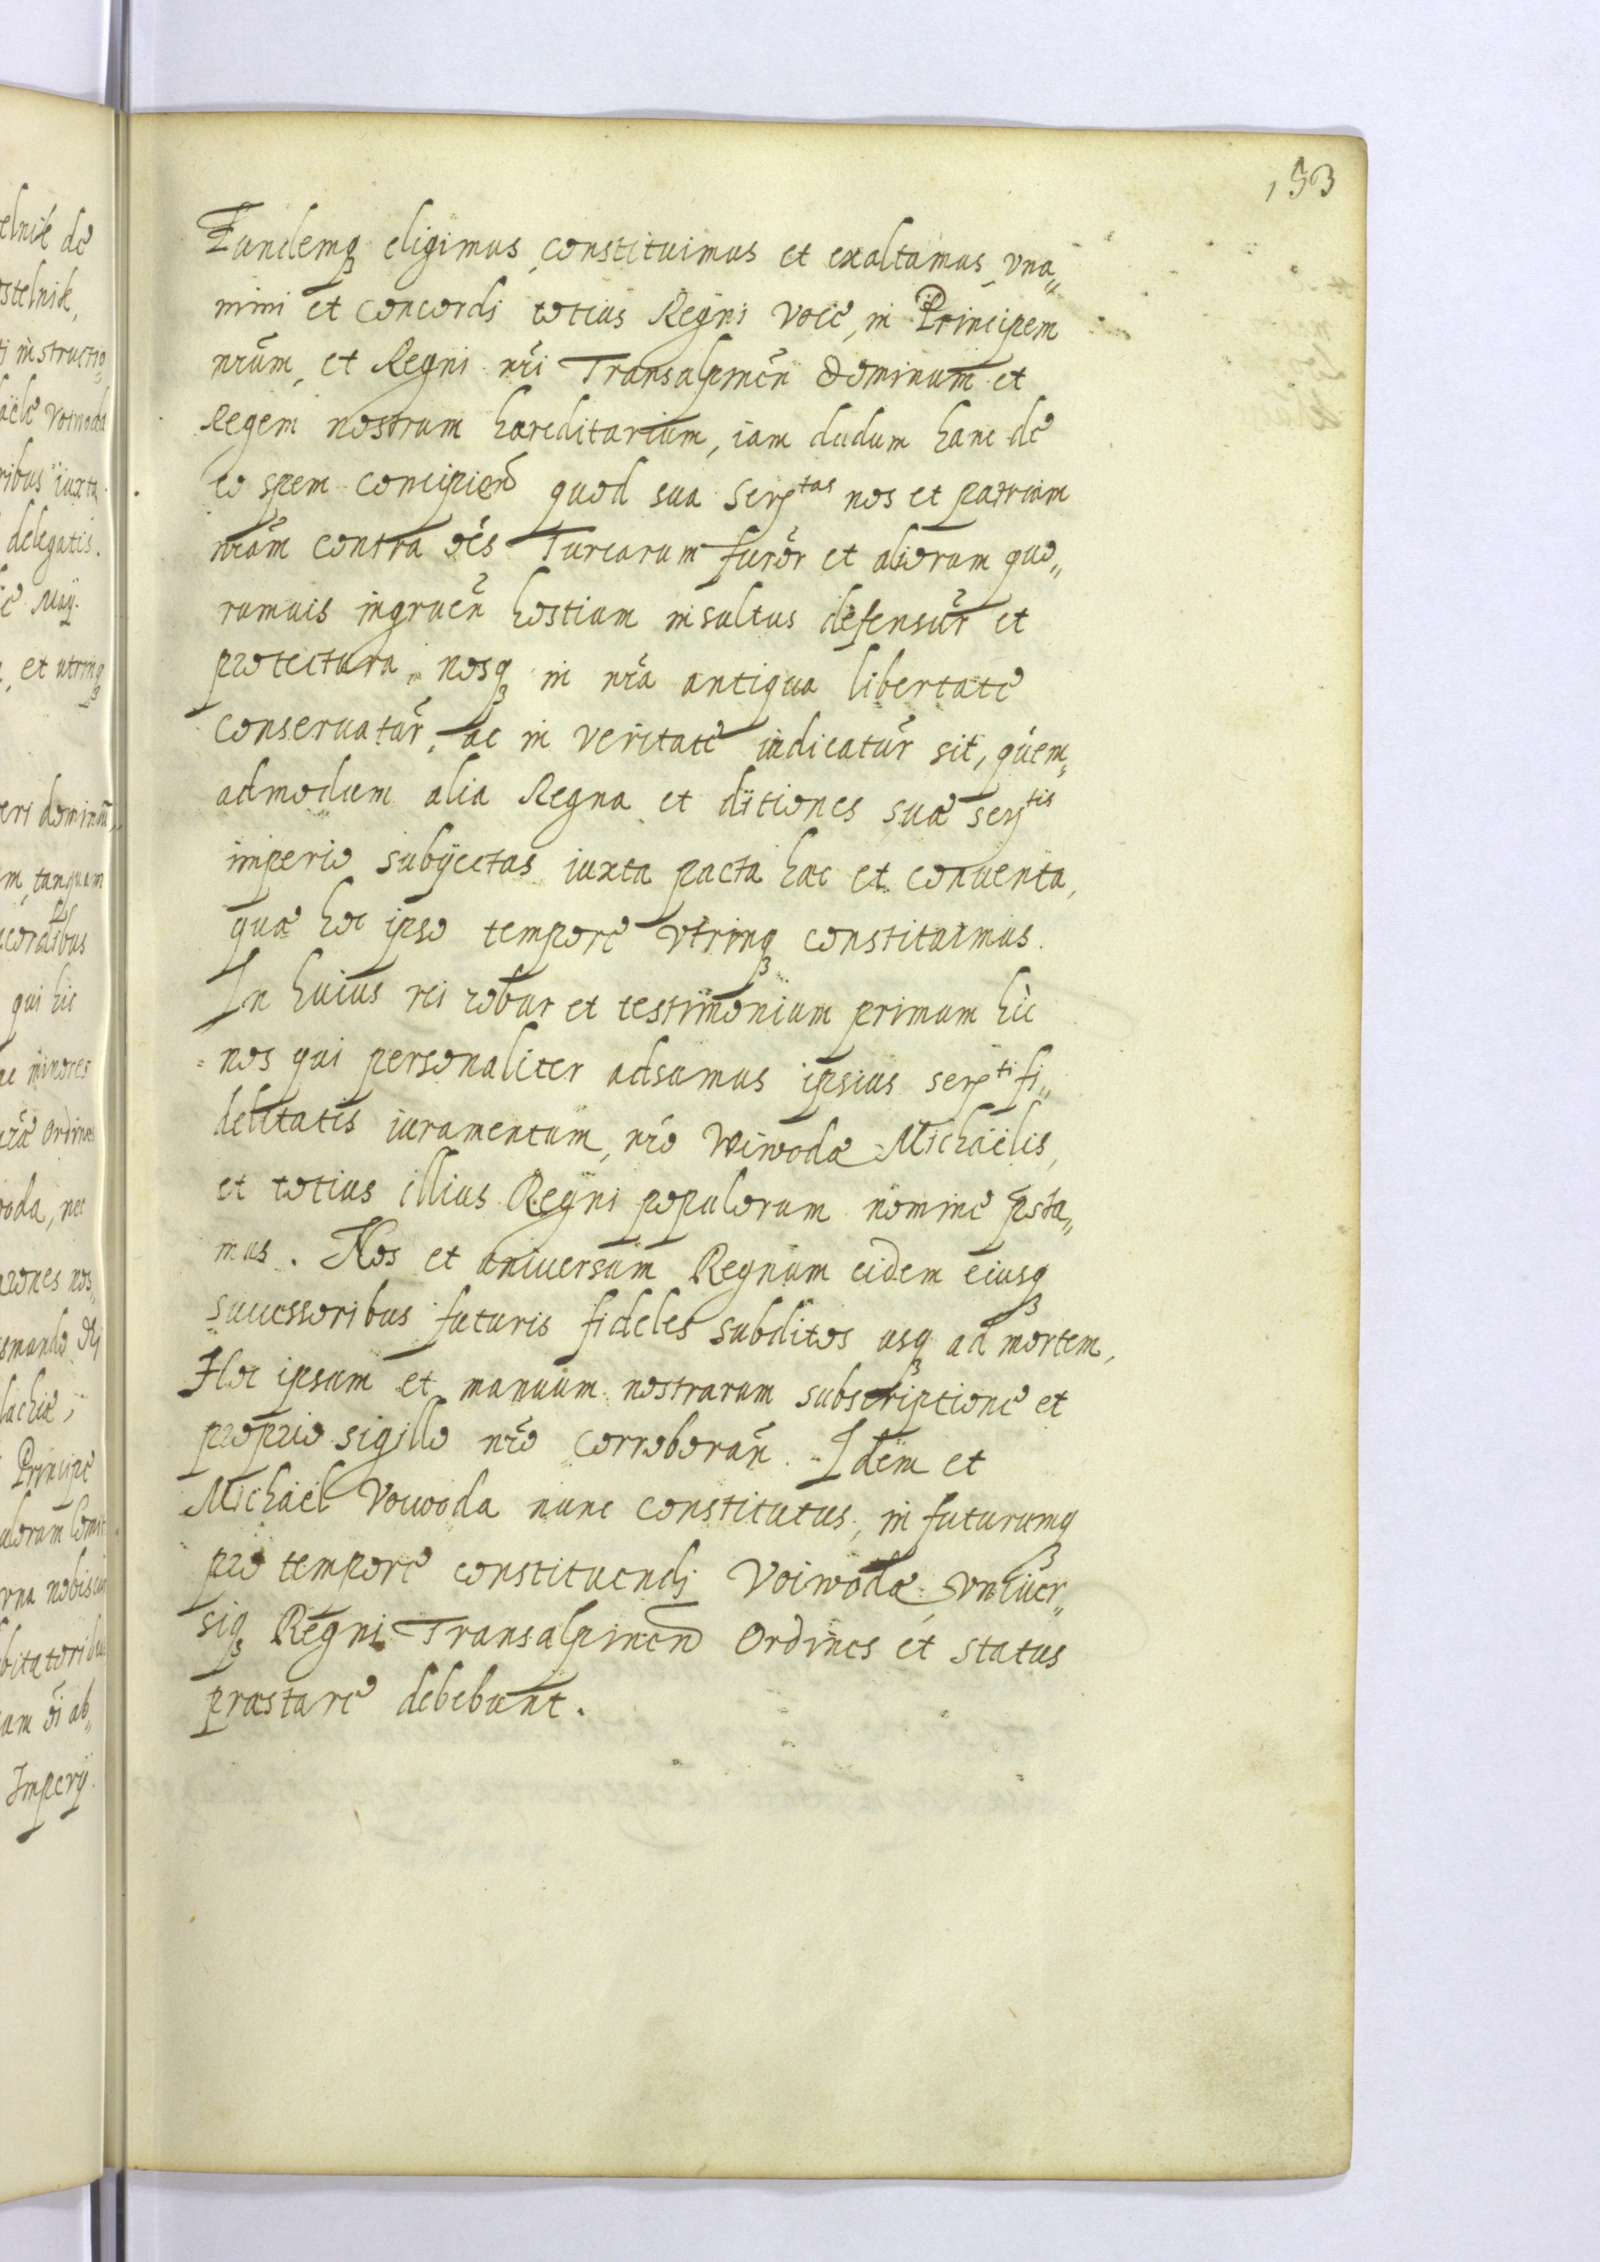 153
Eundemq₃ eligimus, constituimus et exaltamus, vna„
nimi et concordi totius Regni voce, in Principem
nr̃um, et Regni nr̃i Transalpineñ Dominum et
Regem nostrum hæreditarium, iam dudum hanc de
eo spem concipieñ quod sua Serᵗᵃˢ nos et patriam
nr̃am contra oẽs Turcarum furor̃ et aliorum quo„
rumuis ingrueñ hostium insultus defensur̃ et
protectura, nosq₃ in nr̃a antiqua libertate
conseruatur̃, ac in veritate iudicatur̃ sit, quem„
admodum alia Regna et ditiones suæ Serᵗⁱˢ
imperio subÿectas iuxta pacta hæc et conuenta,
quæ hoc ipso tempore vtrinq₃ constituimus.
In huius rei robur et testimonium primum hìc
nos qui personaliter adsumus ipsius Serᵗⁱ fi„
delitatis iuramentum, nr̃o Wiwodæ Michaëlis,
et totius illius Regni populorum nomine p̃sta„
mus. Nos et uniuersum Regnum eidem eiusq₃
successoribus futuris fideles subditos usq₃ ad mortem,
Hoc ipsum et manuum nostrarum subscriptione et
proprio sigillo nr̃o corroborañ. Idem et
Michaël Voiwoda nunc constitutus, in futurumq₃
pro tempore constituendj Voiwodæ vniuer„
siq₃ Regni Transalpineñ Ordines et status
præstare debebunt.
telnik de
ostelnik,
ti instructio„
aële Voiwoda
ribus iuxta
delegatis.
e Maÿ.
, et utrinq₃
eri dominũ
m, tanquam
cordibus
qui hic
ac minores
nr̃æ Ordines
oda, nec
arones nos„
smundo
lachiæ,
Principe
ulorum
rna nobiscum
bitatoribus
am ab„
Imperÿ.